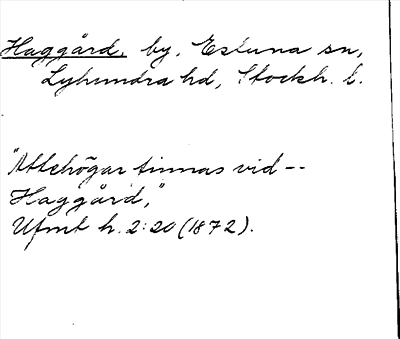 Haggård, by, Estuna sn,
Lyhundra hd, Stockh. l.
"Ättehögar finnas vid --
Haggård",
Ufmt h. 2:20 (1872).